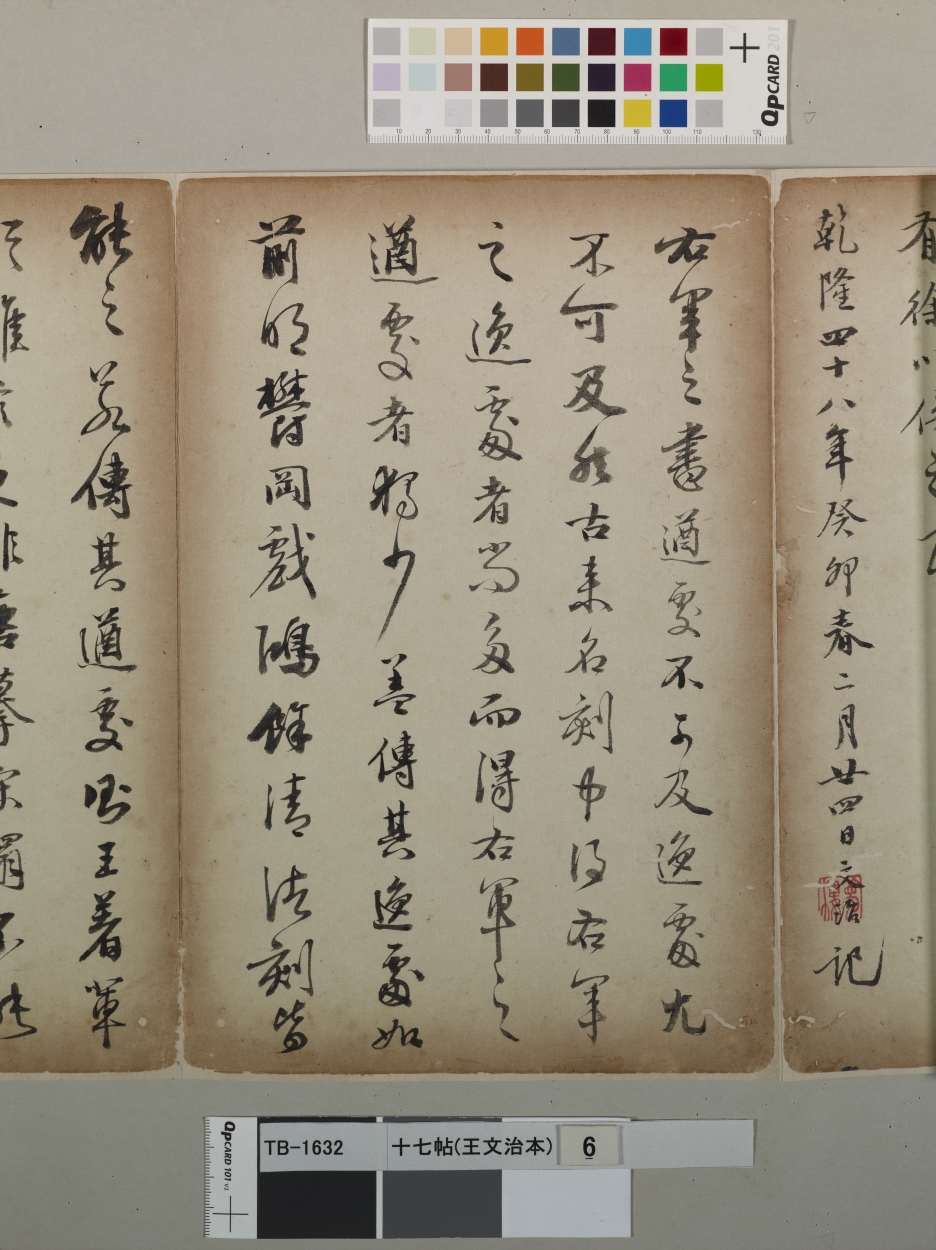 乾隆四十八年癸卯春二月廿四日文治記
右軍之書遒處不可及逸處尤
不可及然古来名刻中得右軍
之逸處者尚多而得右軍之
遒處者獨少蓋傳其逸處如
前明欝岡戲鴻餘清諸刻皆
能之若傳其遒處則王著輩
QPCARD 201
10 20 30 40 50 60 70 80 90 100 110 130
QPCARD 101 v2
TB-1632 十七帖(王文治本) 6